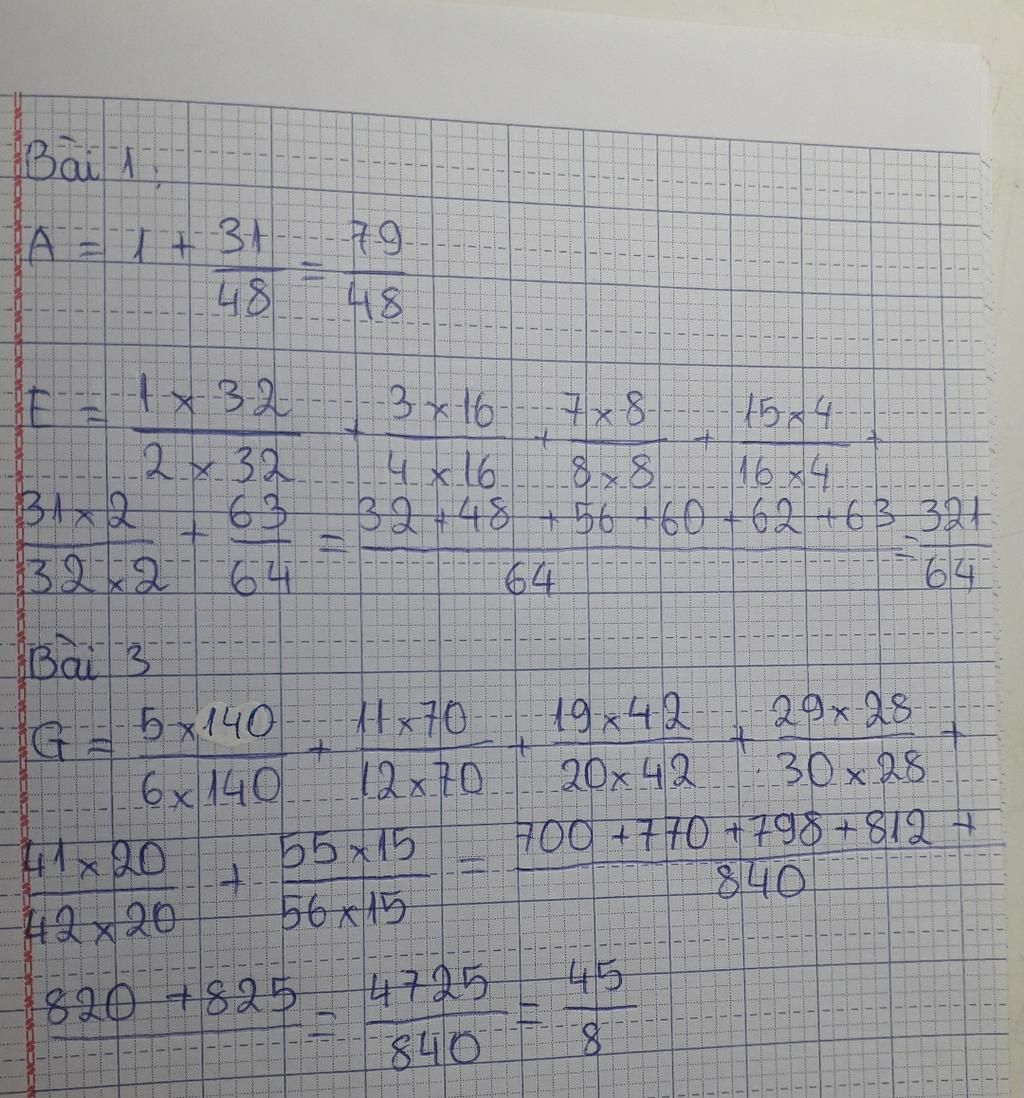 Bài 1:
A = 1 + 31/48 = 79/48
E = 1 x 32 / 2 x 32 + 3 x 16 / 4 x 16 + 7 x 8 / 8 x 8 + 15 x 4 / 16 x 4 +
31 x 2 / 32 x 2 + 63/64 = 32 + 48 + 56 + 60 + 62 + 63 / 64 = 321/64
Bài 3
G = 5 x 140 / 6 x 140 + 11 x 70 / 12 x 70 + 19 x 42 / 20 x 42 + 29 x 28 / 30 x 28 +
41 x 20 / 42 x 20 + 55 x 15 / 56 x 15 = 700 + 770 + 798 + 812 + / 840
820 + 825 = 4725/840 = 45/8